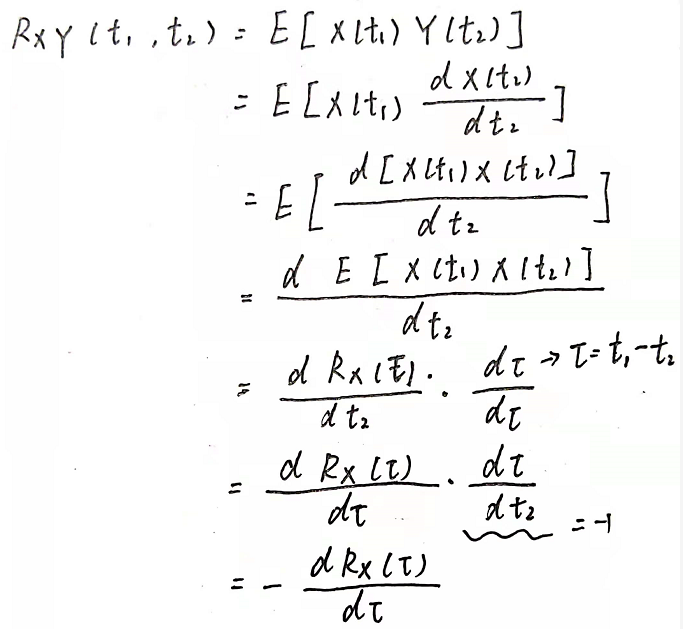 RXY(t₁,t₂) = E[X(t₁)Y(t₂)]
= E[X(t₁) dX(t₂)/dt₂]
= E[d[X(t₁)X(t₂)]/dt₂]
= d E[X(t₁)X(t₂)]/dt₂
= d RX(τ)/dt₂ · dτ/dτ → τ=t₁-t₂
= d RX(τ)/dτ · dτ/dt₂ = -1
= - dRX(τ)/dτ